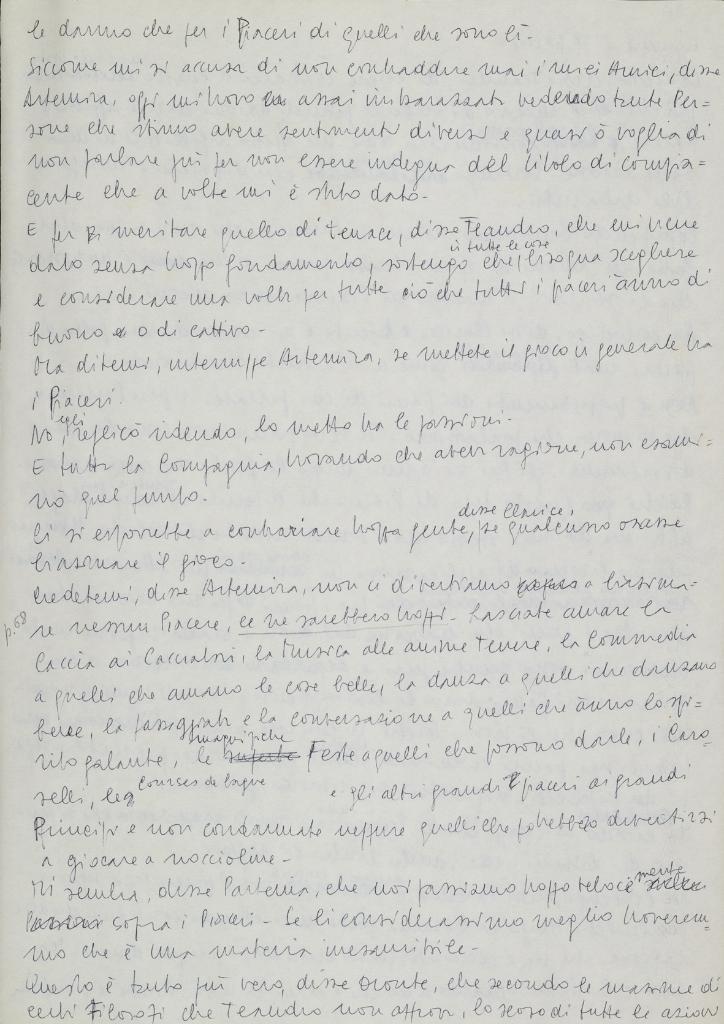 le danno che per i Piaceri di quelli che sono lì-
Siccome mi si accusa di non contraddire mai i miei Amici, disse
Artemira, oggi mi trovo assai imbarazzata vedendo tante Per=
sone che stimo avere sentimenti diversi e quasi ò voglia di
non parlare più per non essere indegna del titolo di compia=
cente che a volte mi è stato dato-
E per meritare quello di tenace, disse Teandro, che mi viene
dato senza troppo fondamento, sostengo che in tutte le cose bisogna scegliere
e considerare una volta per tutte ciò che tutti i piaceri ànno di
buono o di cattivo-
Ma ditemi, interruppe Artemira, se mettete il gioco in generale tra
i Piaceri.
No, egli replicò ridendo, lo metto tra le passioni-
E tutta la Compagnia, trovando che aveva ragione, non esami=
nò quel punto.
Ci si esporrebbe a contrariare troppa gente, disse Clarice, se qualcuno osasse
biasimare il gioco-
Credetemi, disse Artemira, non ci divertiamo a biasima=
p.68 re nessun Piacere, ce ne sarebbero troppi- Lasciate amare la
Caccia ai Cacciatori, la Musica alle anime tenere, la Commedia
a quelli che amano le cose belle, la danza a quelli che danzano
bene, la passeggiata e la conversazione a quelli che ànno lo spi=
rito galante, le magnifiche Feste a quelli che possono darle, i Caro=
selli, le Courses de bague e gli altri grandi piaceri ai grandi
Principi e non condannate neppure quelli che potrebbero divertirsi
a giocare a noccioline-
Mi sembra, disse Partenia, che noi passiamo troppo velocemente
sopra i Piaceri- Se li considerassimo meglio troverem=
mo che è una materia inesauribile-
Questo è tanto più vero, disse Oronte, che secondo le massime di
certi Filosofi che Teandro non approva, lo scopo di tutte le azioni